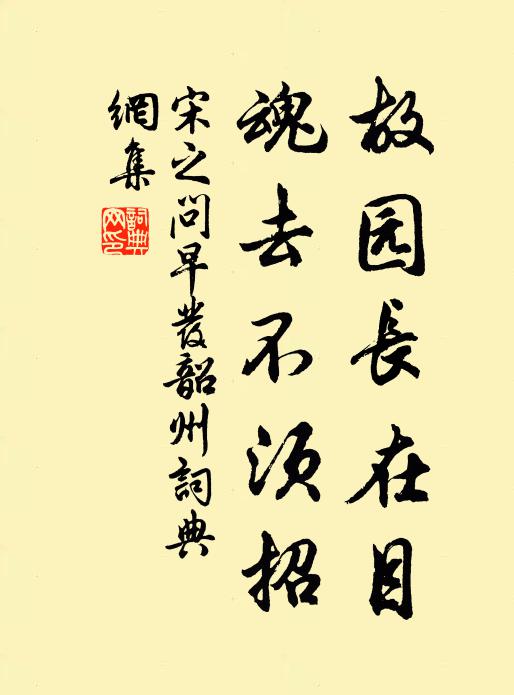 故园長在目
魂去不须招
宋之问早發韶州詞典
網集
詞典
网印